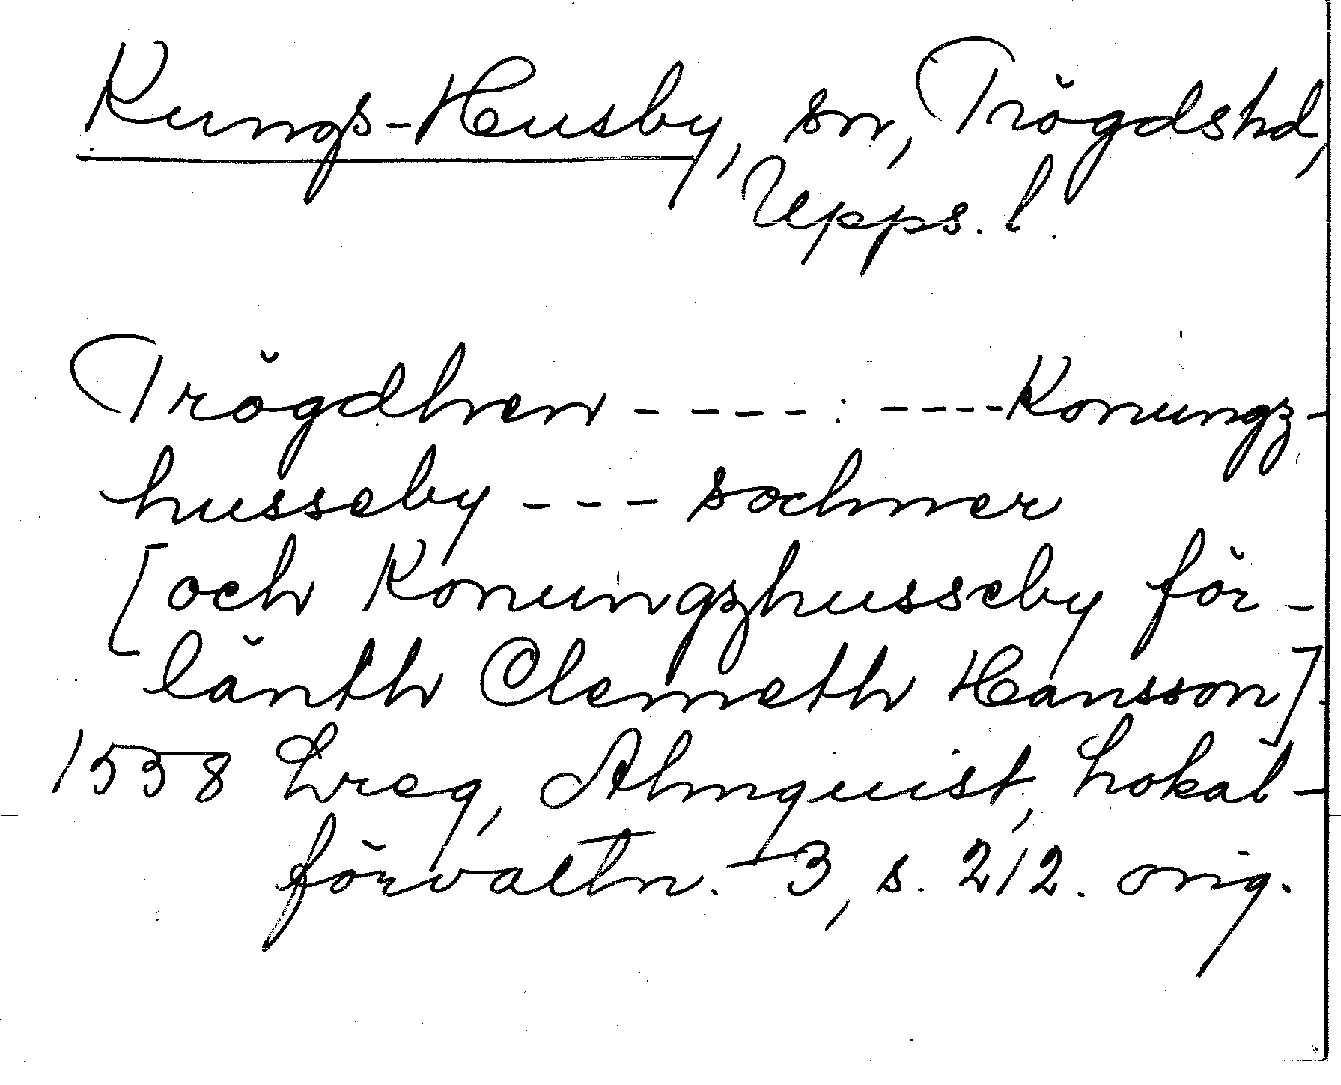 Kungs-Husby, sn, Trögdshd,
Upps. l.
Trögdhen - - - - : - - - - Konungz-
husseby - - - sochner
[och Konungzhusseby för-
länth Clemeth Hansson].
1538 Lreg, Almquist, Lokal-
förvaltn. 3, s. 212. orig.